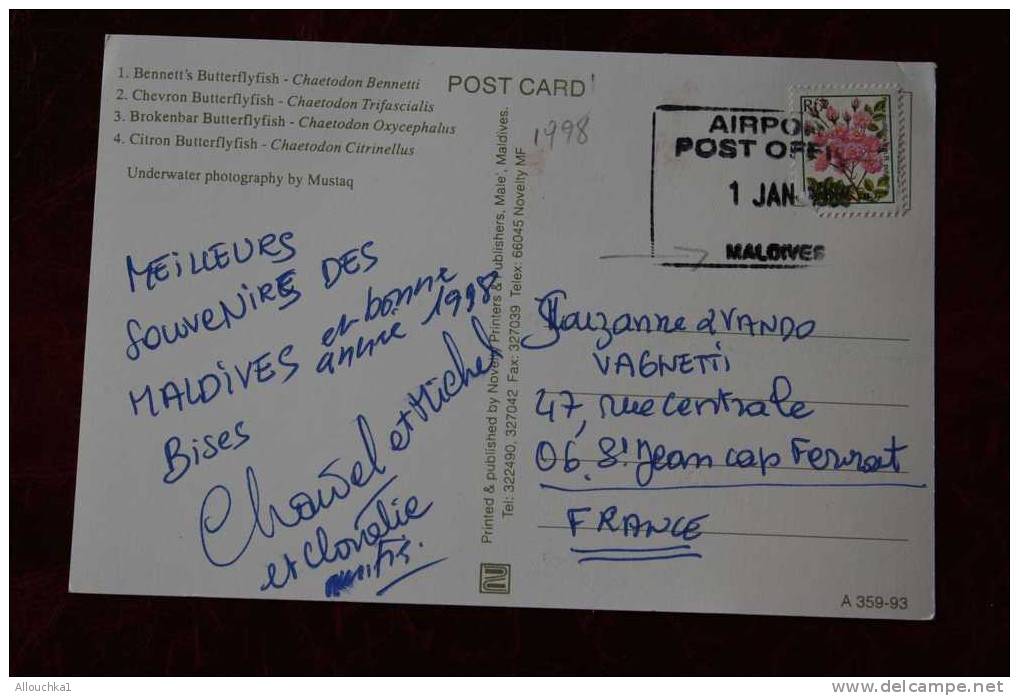 1. Bennett's Butterflyfish - Chaetodon Bennetti
2. Chevron Butterflyfish - Chaetodon Trifascialis
3. Brokenbar Butterflyfish - Chaetodon Oxycephalus
4. Citron Butterflyfish - Chaetodon Citrinellus
Underwater photography by Mustaq
POST CARD
1998
AIRPO
POST OFFI
1 JAN
MALDIVES
MEILLEURS
SOUVENIRS DES
MALDIVES et bonne
année 1998
Bises
et Michel
et
Printed & published by Novelty Printers & Publishers, Male', Maldives.
Tel: 322490, 327042 Fax: 327039 Telex: 66045 Novelty MF
Suzanne d VANDO
VAGNETTI
47, rue centrale
06. St Jean cap Ferrat
FRANCE
A 359-93
Allouchka1
delcampe.net